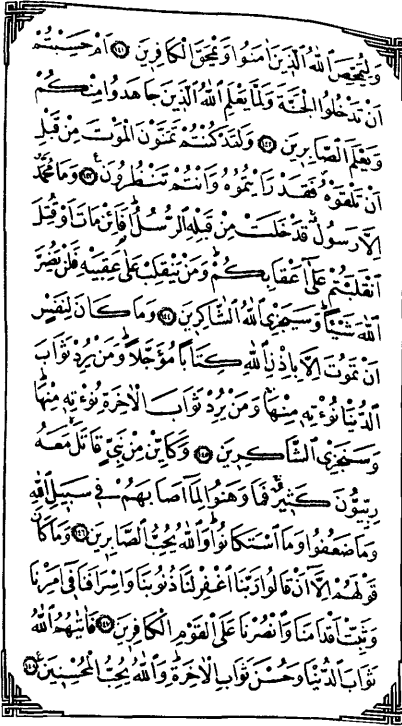 وَلِيُمَحِّصَ اللّٰهُ الَّذٖينَ اٰمَنُوا وَيَمْحَقَ الْكَافِرٖينَ ﴿١٤١﴾ اَمْ حَسِبْتُمْ
اَنْ تَدْخُلُوا الْجَنَّةَ وَلَمَّا يَعْلَمِ اللّٰهُ الَّذٖينَ جَاهَدُوا مِنْكُمْ
وَيَعْلَمَ الصَّابِرٖينَ ﴿١٤٢﴾ وَلَقَدْ كُنْتُمْ تَمَنَّوْنَ الْمَوْتَ مِنْ قَبْلِ
اَنْ تَلْقَوْهُ فَقَدْ رَاَيْتُمُوهُ وَاَنْتُمْ تَنْظُرُونَ ﴿١٤٣﴾ وَمَا مُحَمَّدٌ
اِلَّا رَسُولٌ قَدْ خَلَتْ مِنْ قَبْلِهِ الرُّسُلُ اَفَائِنْ مَاتَ اَوْ قُتِلَ
انْقَلَبْتُمْ عَلٰٓى اَعْقَابِكُمْ وَمَنْ يَنْقَلِبْ عَلٰى عَقِبَيْهِ فَلَنْ يَضُرَّ
اللّٰهَ شَيْـًٔا وَسَيَجْزِي اللّٰهُ الشَّاكِرٖينَ ﴿١٤٤﴾ وَمَا كَانَ لِنَفْسٍ
اَنْ تَمُوتَ اِلَّا بِاِذْنِ اللّٰهِ كِتَابًا مُؤَجَّلًا وَمَنْ يُرِدْ ثَوَابَ
الدُّنْيَا نُؤْتِهٖ مِنْهَا وَمَنْ يُرِدْ ثَوَابَ الْاٰخِرَةِ نُؤْتِهٖ مِنْهَا
وَسَنَجْزِي الشَّاكِرٖينَ ﴿١٤٥﴾ وَكَاَيِّنْ مِنْ نَبِيٍّ قَاتَلَ مَعَهُ
رِبِّيُّونَ كَثٖيرٌ فَمَا وَهَنُوا لِمَٓا اَصَابَهُمْ فٖي سَبٖيلِ اللّٰهِ
وَمَا ضَعُفُوا وَمَا اسْتَكَانُوا وَاللّٰهُ يُحِبُّ الصَّابِرٖينَ ﴿١٤٦﴾ وَمَا كَانَ
قَوْلَهُمْ اِلَّٓا اَنْ قَالُوا رَبَّنَا اغْفِرْ لَنَا ذُنُوبَنَا وَاِسْرَافَنَا فٖٓي اَمْرِنَا
وَثَبِّتْ اَقْدَامَنَا وَانْصُرْنَا عَلَى الْقَوْمِ الْكَافِرٖينَ ﴿١٤٧﴾ فَاٰتٰيهُمُ اللّٰهُ
ثَوَابَ الدُّنْيَا وَحُسْنَ ثَوَابِ الْاٰخِرَةِ وَاللّٰهُ يُحِبُّ الْمُحْسِنٖينَ ﴿١٤٨﴾